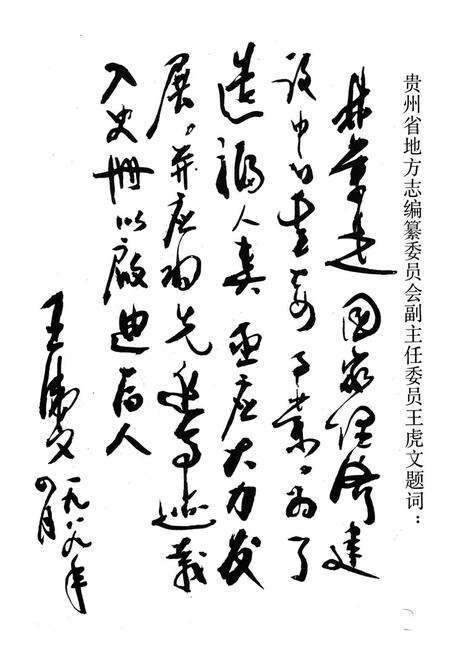 贵州省地方志编纂委员会副主任委员王虎文题词：
林业是国家经济建
设中的重要事业，为了
造福人类亟应大力发
展，并应将先进事迹载
入史册以启迪后人
王虎文
一九八九年
四月